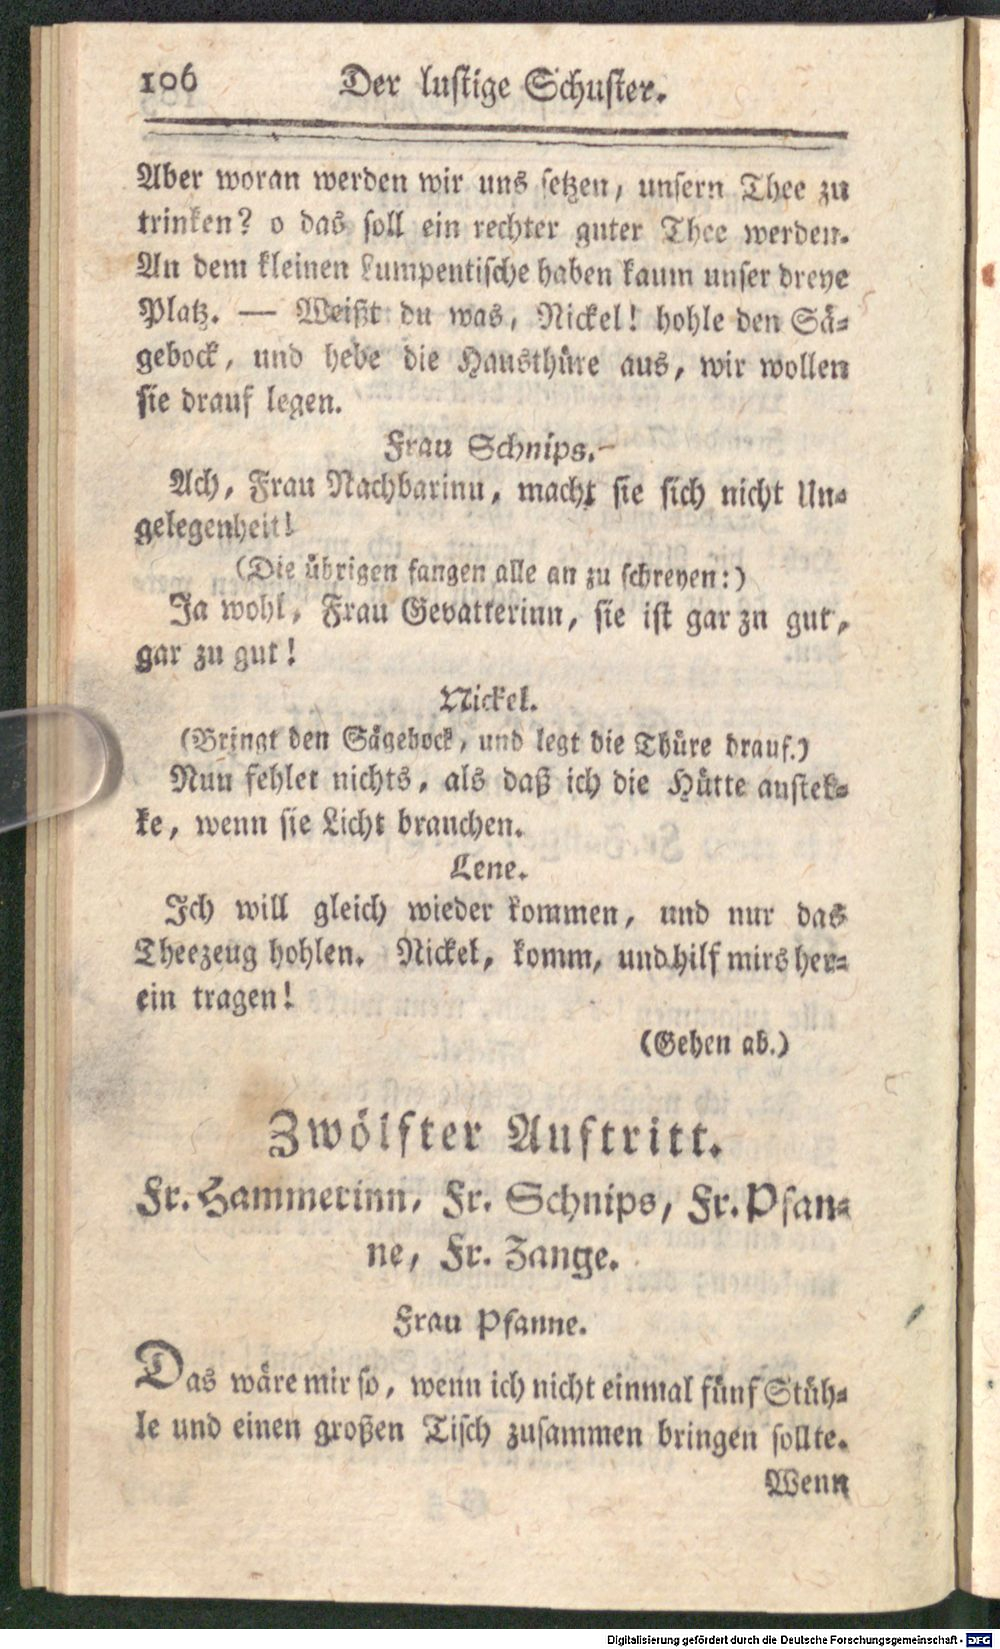 106 Der lustige Schuster.
Aber woran werden wir uns setzen, unsern Thee zu
trinken? o das soll ein rechter guter Thee werden.
An dem kleinen Lumpentische haben kaum unser dreye
Platz. — Weißt du was, Nickel! hohle den Sä-
gebock, und hebe die Hausthüre aus, wir wollen
sie drauf legen.
Frau Schnips.
Ach, Frau Nachbarinn, macht sie sich nicht Un-
gelegenheit!
(Die übrigen fangen alle an zu schreyen:)
Ja wohl, Frau Gevatterinn, sie ist gar zu gut,
gar zu gut!
Nickel.
(Bringt den Sägebock, und legt die Thüre drauf.)
Nun fehlet nichts, als daß ich die Hütte anstek-
ke, wenn sie Licht brauchen.
Lene.
Ich will gleich wieder kommen, und nur das
Theezeug hohlen. Nickel, komm, und hilf mirs her-
ein tragen!
(Gehen ab.)
Zwölfter Auftritt.
Fr. Hammerinn, Fr. Schnips, Fr. Pfan-
ne, Fr. Zange.
Frau Pfanne.
Das wäre mir so, wenn ich nicht einmal fünf Stüh-
le und einen großen Tisch zusammen bringen sollte.
Wenn
Digitalisierung gefördert durch die Deutsche Forschungsgemeinschaft - DFG